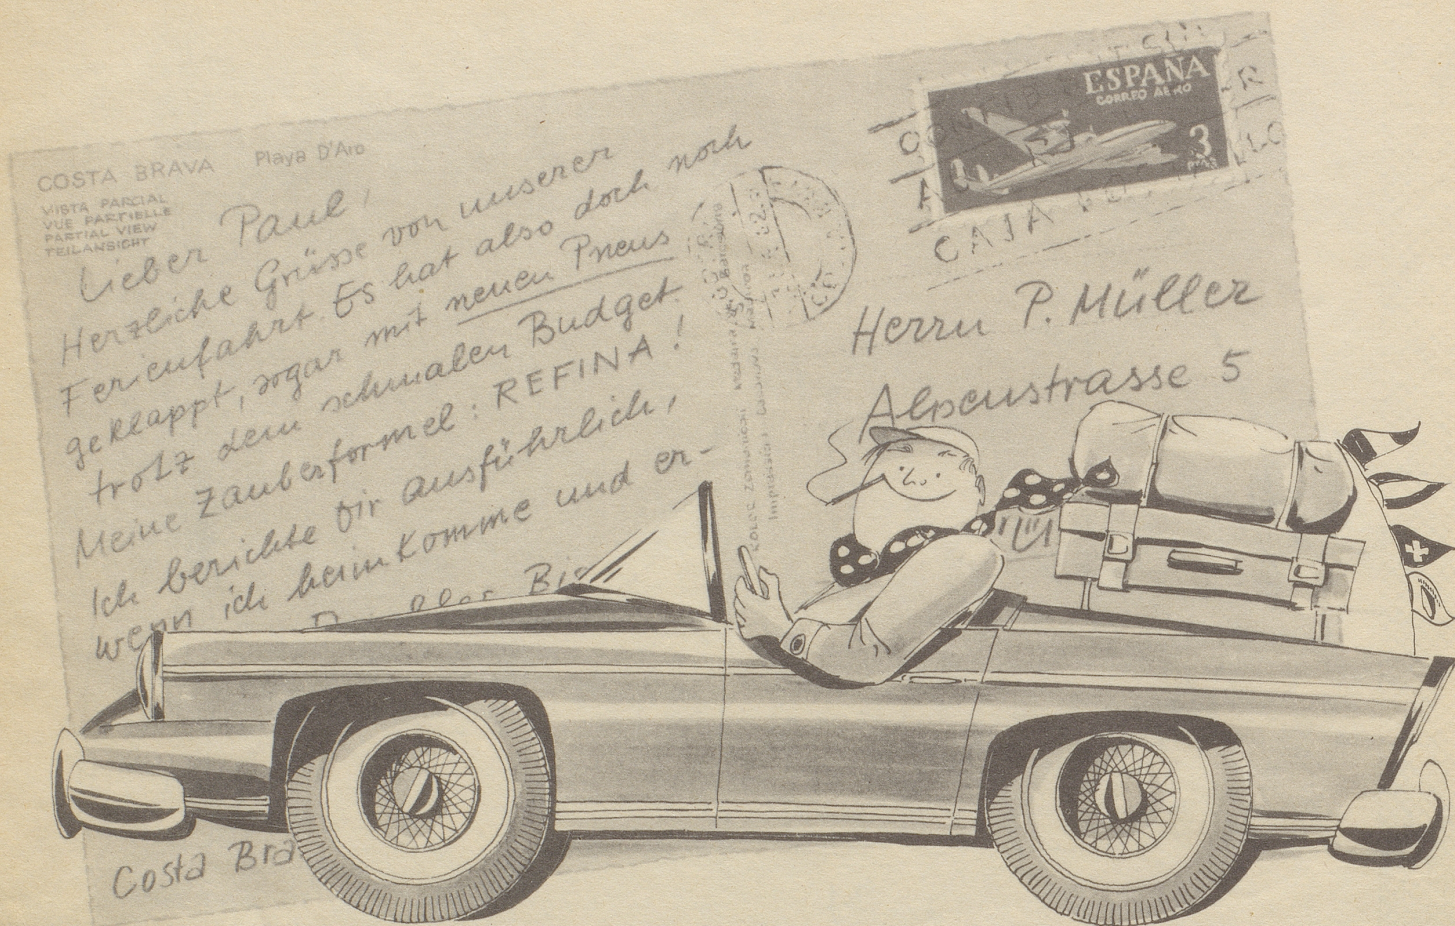 COSTA BRAVA Playa D'Aro
VISTA PARCIAL
VUE PARTIELLE
PARTIAL VIEW
TEILANSICHT
Lieber Paul,
Herzliche Grüsse von unserer
Ferienfahrt. Es hat also doch noch
geklappt, sogar mit neuen Pneus
trotz dem schmalen Budget.
Meine Zauberformel: REFINA!
Ich berichte Dir ausführlich,
wenn ich heimkomme und er-
Costa Bra
ESPAÑA
CORREO AEREO
3
PTAS
CAJA POSTAL
Herrn P. Müller
Alpenstrasse 5